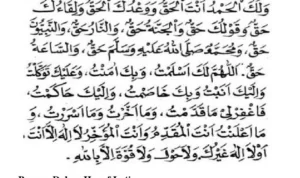 وَلَكَ الْحَمْدُ اَنْتَ الْحَقُّ وَوَعْدُكَ الْحَقُّ وَلِقَاءُكَ
حَقٌّ وَقَوْلُكَ حَقٌّ وَالْجَنَّةُ حَقٌّ، وَالنَّارُ حَقٌّ، وَالنَّبِيُّوْنَ
حَقٌّ، وَمُحَمَّدٌ صَلَّى اللهُ عَلَيْهِ وَسَلَّمَ حَقٌّ، وَالسَّاعَةُ
حَقٌّ. اَللّٰهُمَّ لَكَ اَسْلَمْتُ، وَبِكَ اٰمَنْتُ، وَعَلَيْكَ تَوَكَّلْتُ
وَاِلَيْكَ اَنَبْتُ وَبِكَ خَاصَمْتُ، وَاِلَيْكَ حَاكَمْتُ،
فَاغْفِرْلِيْ مَا قَدَّمْتُ، وَمَا اَخَّرْتُ وَمَا اَسْرَرْتُ، وَ
مَا اَعْلَنْتُ اَنْتَ الْمُقَدِّمُ وَاَنْتَ الْمُؤَخِّرُ لَا اِلٰهَ اِلَّا اَنْتَ،
اَوْ لَا اِلٰهَ غَيْرُكَ وَلَا حَوْلَ وَلَا قُوَّةَ اِلَّا بِاللهِ.